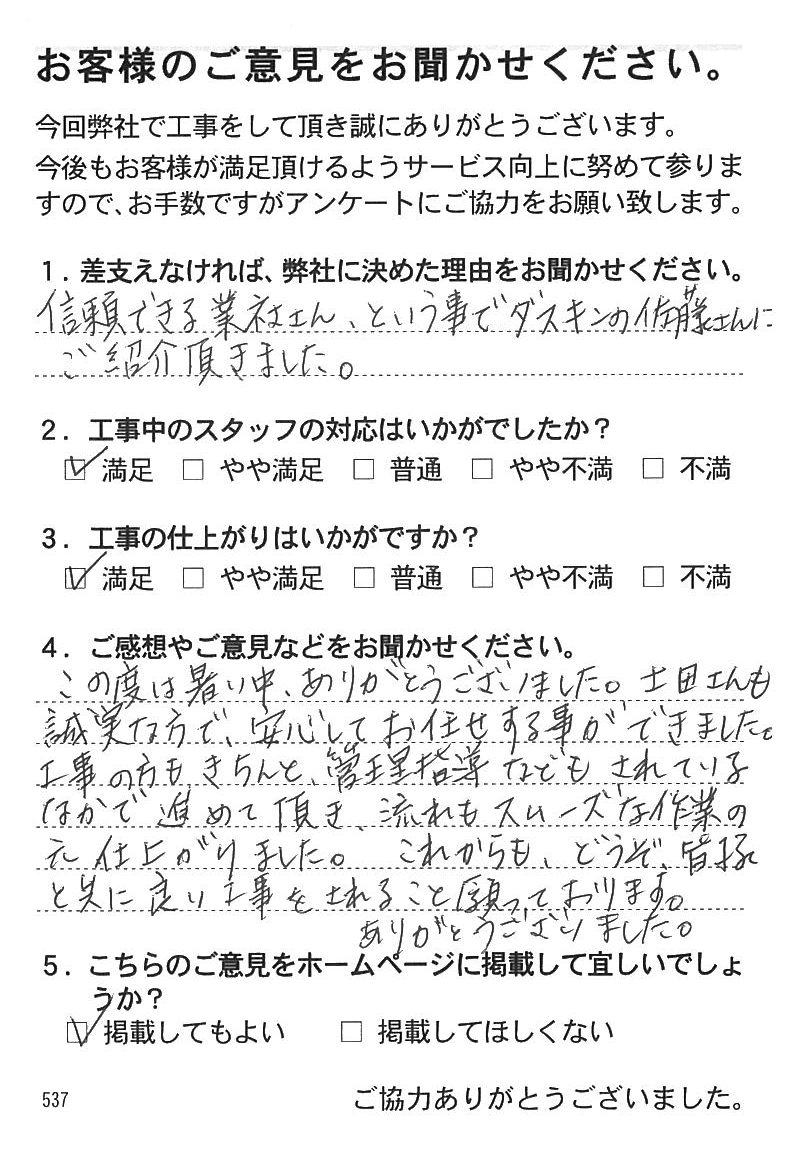 お客様のご意見をお聞かせください。
今回弊社で工事をして頂き誠にありがとうございます。
今後もお客様が満足頂けるようサービス向上に努めて参りま
すので、お手数ですがアンケートにご協力をお願い致します。
1．差支えなければ、弊社に決めた理由をお聞かせください。
信頼できる業社さん、という事でダスキンの佐藤さんに
ご紹介頂きました。
2．工事中のスタッフの対応はいかがでしたか？
☑ 満足 □ やや満足 □ 普通 □ やや不満 □ 不満
3．工事の仕上がりはいかがですか？
☑ 満足 □ やや満足 □ 普通 □ やや不満 □ 不満
4．ご感想やご意見などをお聞かせください。
この度は暑い中、ありがとうございました。土田さんも
誠実な方で、安心してお任せする事ができました。
工事の方もきちんと、管理指導などもされている
なかで進めて頂き、流れもスムーズな作業の
元仕上がりました。これからも、どうぞ、皆様
と共に良い工事をされること願っております。
ありがとうございました。
5．こちらのご意見をホームページに掲載して宜しいでしょ
うか？
☑ 掲載してもよい □ 掲載してほしくない
537 ご協力ありがとうございました。